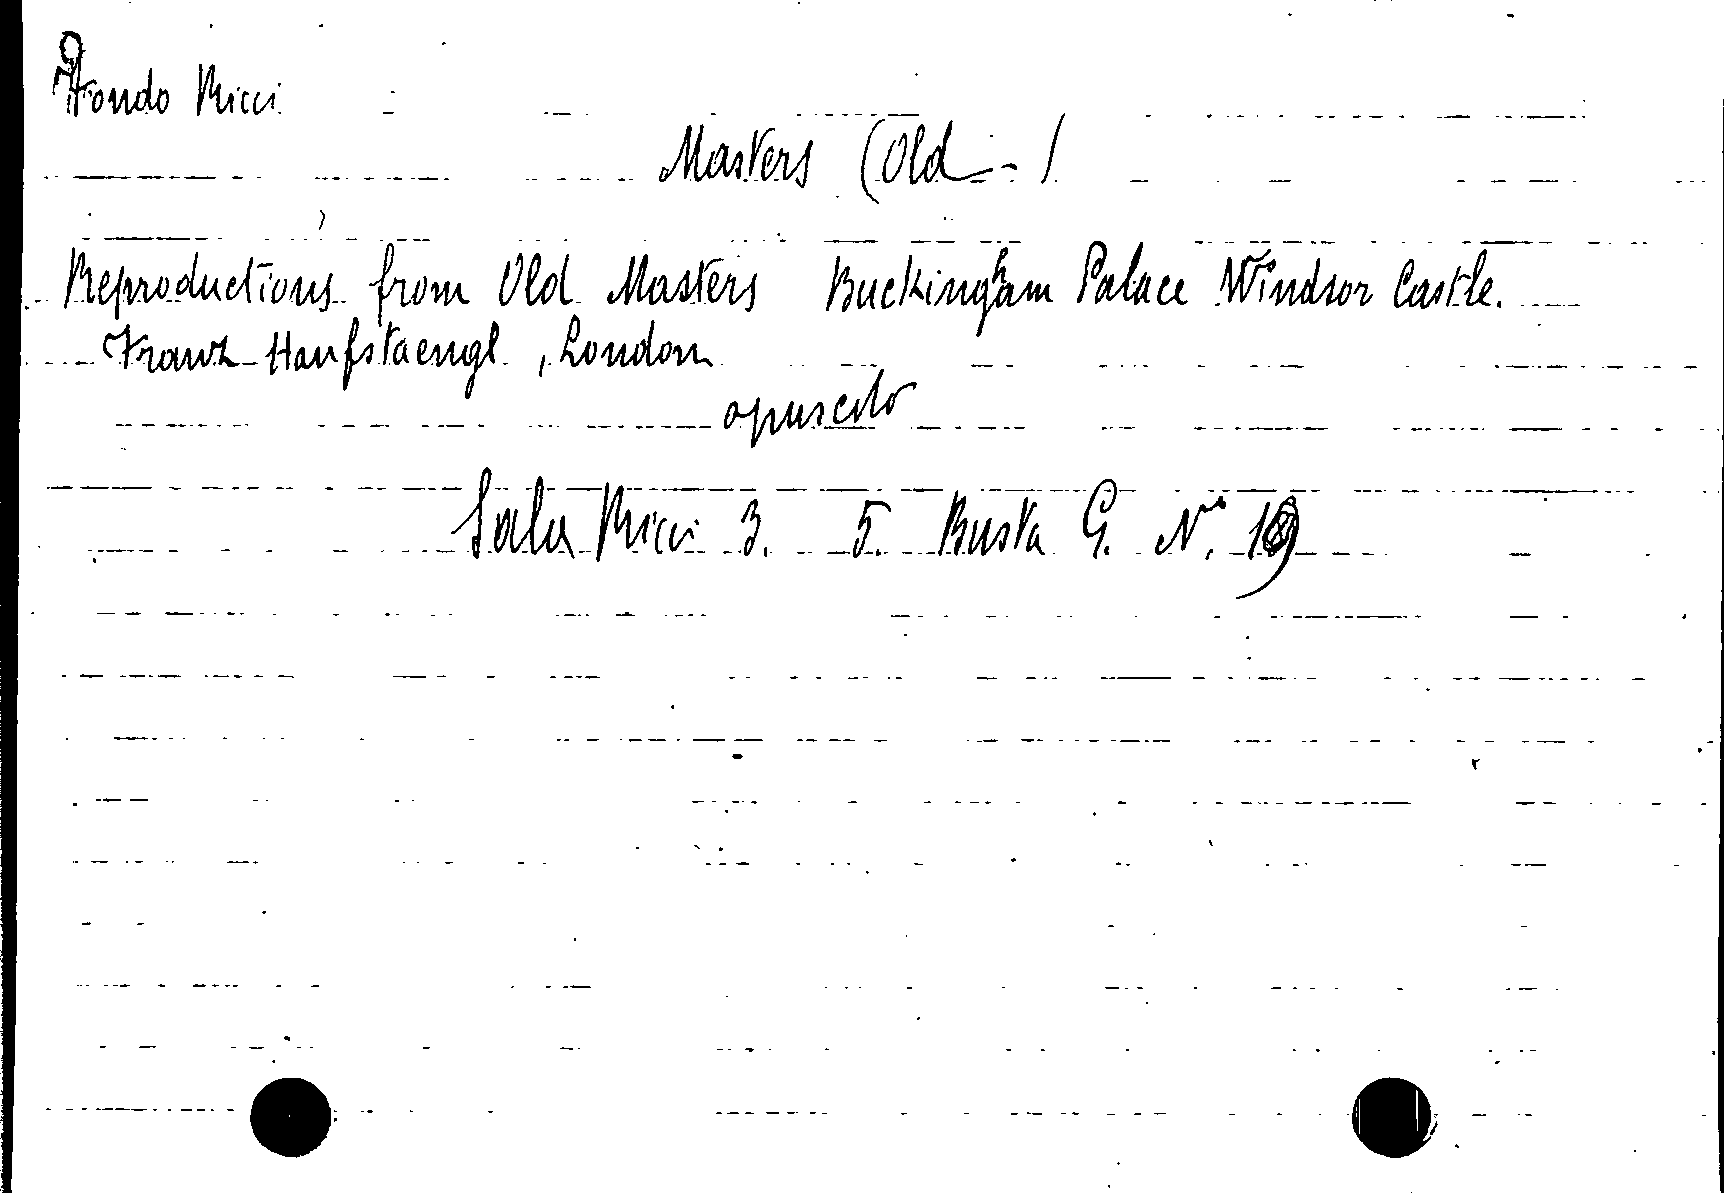 Fondo Ricci
Masters (Old - )
Reproductions from Old Masters Buckingham Palace Windsor Castle.
Franz Hanfstaengl, London
opuscolo
Sala Ricci 3. 5. Busta G. N.° 19